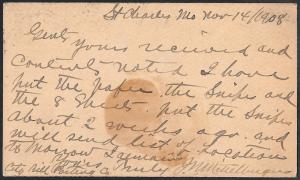 St Charles Mo Nov 14/1908
Gents
yours received and
Contents noted I have
put the paper the Snipes and
the 8 Sheets. put the Snipes
about 2 weeks ago. and
will send list of Locations
to Morrow I remain
Truly
City Bill Posting Co